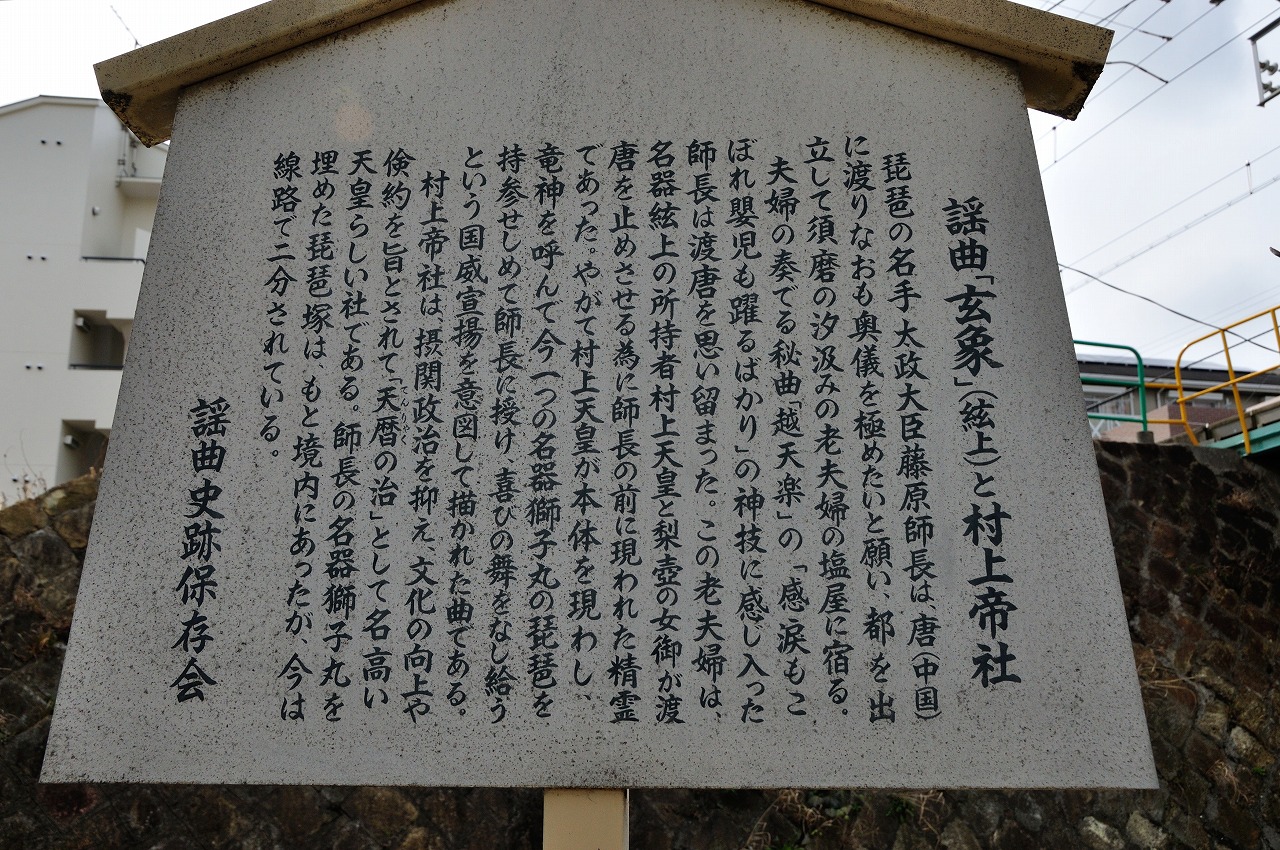 謡曲「玄象」（絃上）と村上帝社
琵琶の名手太政大臣藤原師長は、唐（中国）
に渡りなおも奥儀を極めたいと願い、都を出
立して須磨の汐汲みの老夫婦の塩屋に宿る。
夫婦の奏でる秘曲「越天楽」の「感涙もこ
ぼれ嬰児も躍るばかり」の神技に感じ入った
師長は渡唐を思い留まった。この老夫婦は、
名器絃上の所持者村上天皇と梨壺の女御が渡
唐を止めさせる為に師長の前に現われた精霊
であった。やがて村上天皇が本体を現わし、
竜神を呼んで今一つの名器獅子丸の琵琶を
持参せしめて師長に授け、喜びの舞をなし給う
という国威宣揚を意図して描かれた曲である。
村上帝社は、摂関政治を抑え、文化の向上や
倹約を旨とされて「天暦の治」として名高い
天皇らしい社である。師長の名器獅子丸を
埋めた琵琶塚は、もと境内にあったが、今は
線路で二分されている。
謡曲史跡保存会